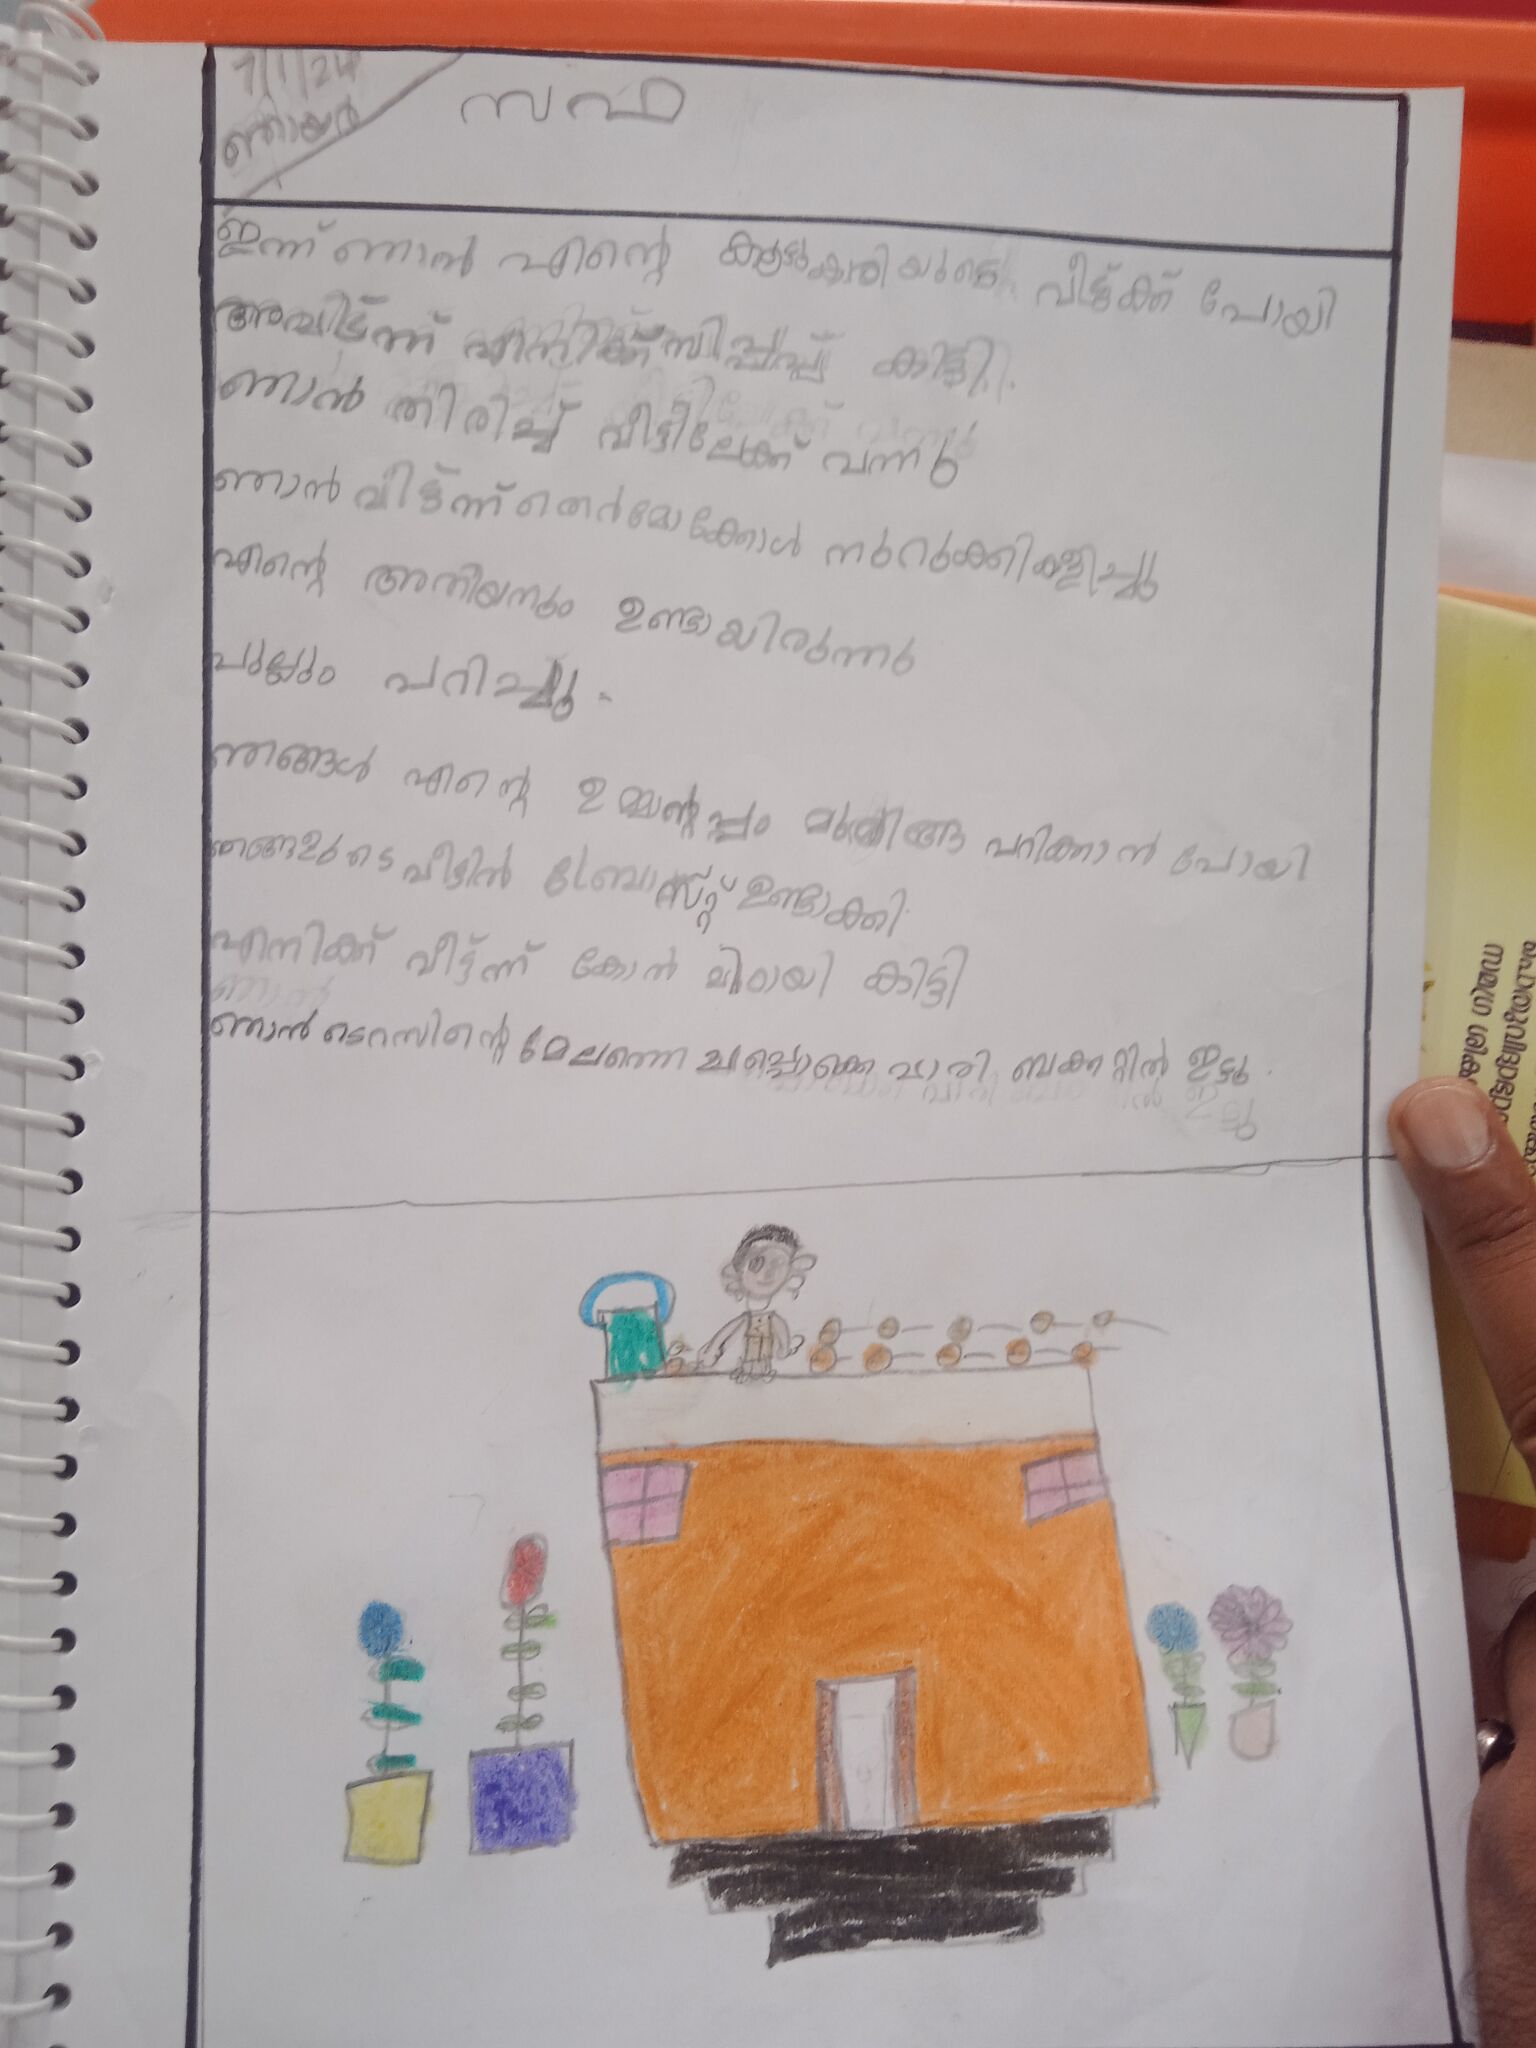 7/1/24
ഞായർ
സഫ
ഇന്ന് ഞാൻ എന്റെ കൂട്ടുകാരിയുടെ വീട്ട്ക്ക് പോയി
അവിട്ന്ന് എനിക്ക് സിപ്പപ്പ് കിട്ടി.
ഞാൻ തിരിച്ച് വീട്ടിലേക്ക് വന്നു
ഞാൻ വീട്ട്ന്ന് തെർമോക്കോൾ നുറുക്കികളിച്ചു
എന്റെ അനിയനും ഉണ്ടായിരുന്നു
പുല്ലും പറിച്ചു.
ഞങ്ങൾ എന്റെ ഉമ്മന്റപ്പം മുരിങ്ങ പറിക്കാൻ പോയി
ഞങ്ങളുടെ വീട്ടിൽ ബ്രോസ്റ്റ് ഉണ്ടാക്കി.
എനിക്ക് വീട്ട്ന്ന് കോൻ മിഠായി കിട്ടി
ഞാൻ ടെറസിന്റെ മേലത്തെ ചപ്പൊക്കെ വാരി ബക്കറ്റിൽ ഇട്ടു.